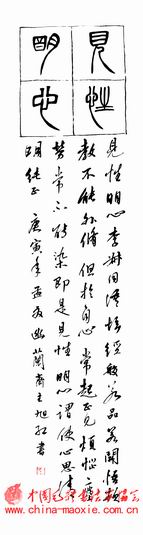 見性
明心
見性明心李叔同語壇經般若品若開悟頓
教不能外修但於自心常起正見煩惱塵
勞常不能染即是見性明心謂使心思清
明純正 庚寅年孟夏幽蘭齋主旭紅書
www.china-maoxie.com.cn